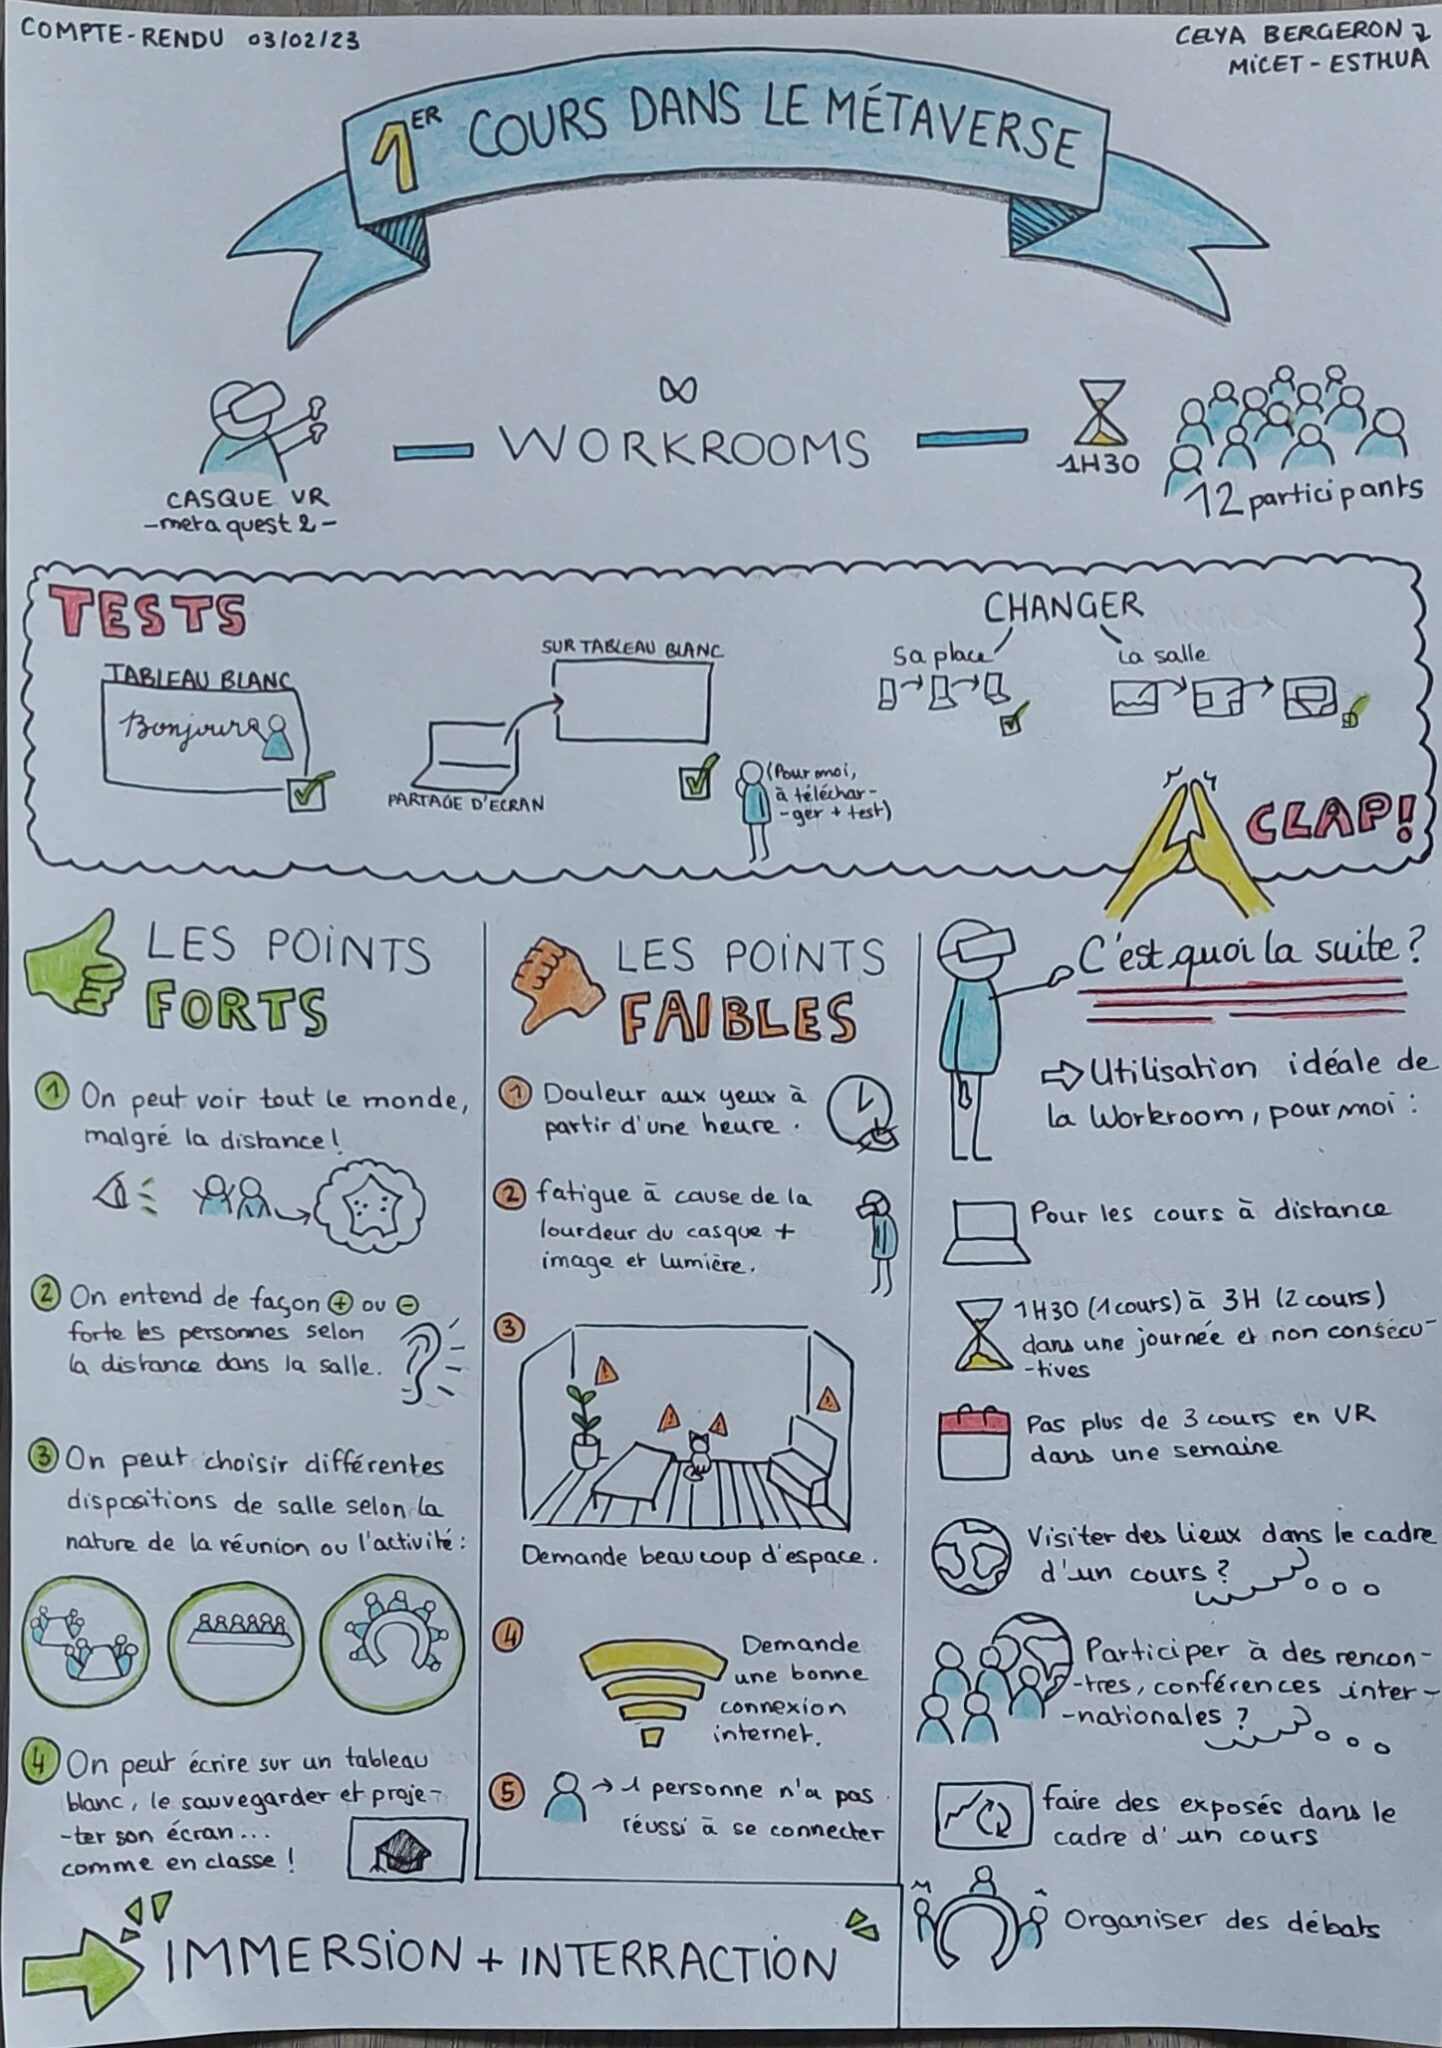 COMPTE-RENDU 03/02/23
CELYA BERGERON
MICET - ESTHUA
1ER COURS DANS LE MÉTAVERSE
CASQUE VR
-meta quest 2-
WORKROOMS
1H30
12 participants
TESTS
TABLEAU BLANC
Bonjour
SUR TABLEAU BLANC
PARTAGE D'ECRAN
(Pour moi,
à téléchar-
-ger + test)
CHANGER
Sa place
la salle
CLAP!
LES POINTS
FORTS
1 On peut voir tout le monde,
malgré la distance!
2 On entend de façon + ou -
forte les personnes selon
la distance dans la salle.
3 On peut choisir différentes
dispositions de salle selon la
nature de la réunion ou l'activité:
4 On peut écrire sur un tableau
blanc, le sauvegarder et proje-
-ter son écran...
comme en classe!
LES POINTS
FAIBLES
1 Douleur aux yeux à
partir d'une heure.
2 fatigue à cause de la
lourdeur du casque +
image et lumière.
3
Demande beaucoup d'espace.
4 Demande
une bonne
connexion
internet.
5 → 1 personne n'a pas
réussi à se connecter
C'est quoi la suite?
⇨ Utilisation idéale de
la Workroom, pour moi:
Pour les cours à distance
1H30 (1 cours) à 3H (2 cours)
dans une journée et non consécu-
-tives
Pas plus de 3 cours en VR
dans une semaine
Visiter des lieux dans le cadre
d'un cours?
Participer à des rencon-
-tres, conférences inter-
-nationales?
faire des exposés dans le
cadre d'un cours
Organiser des débats
IMMERSION + INTERRACTION